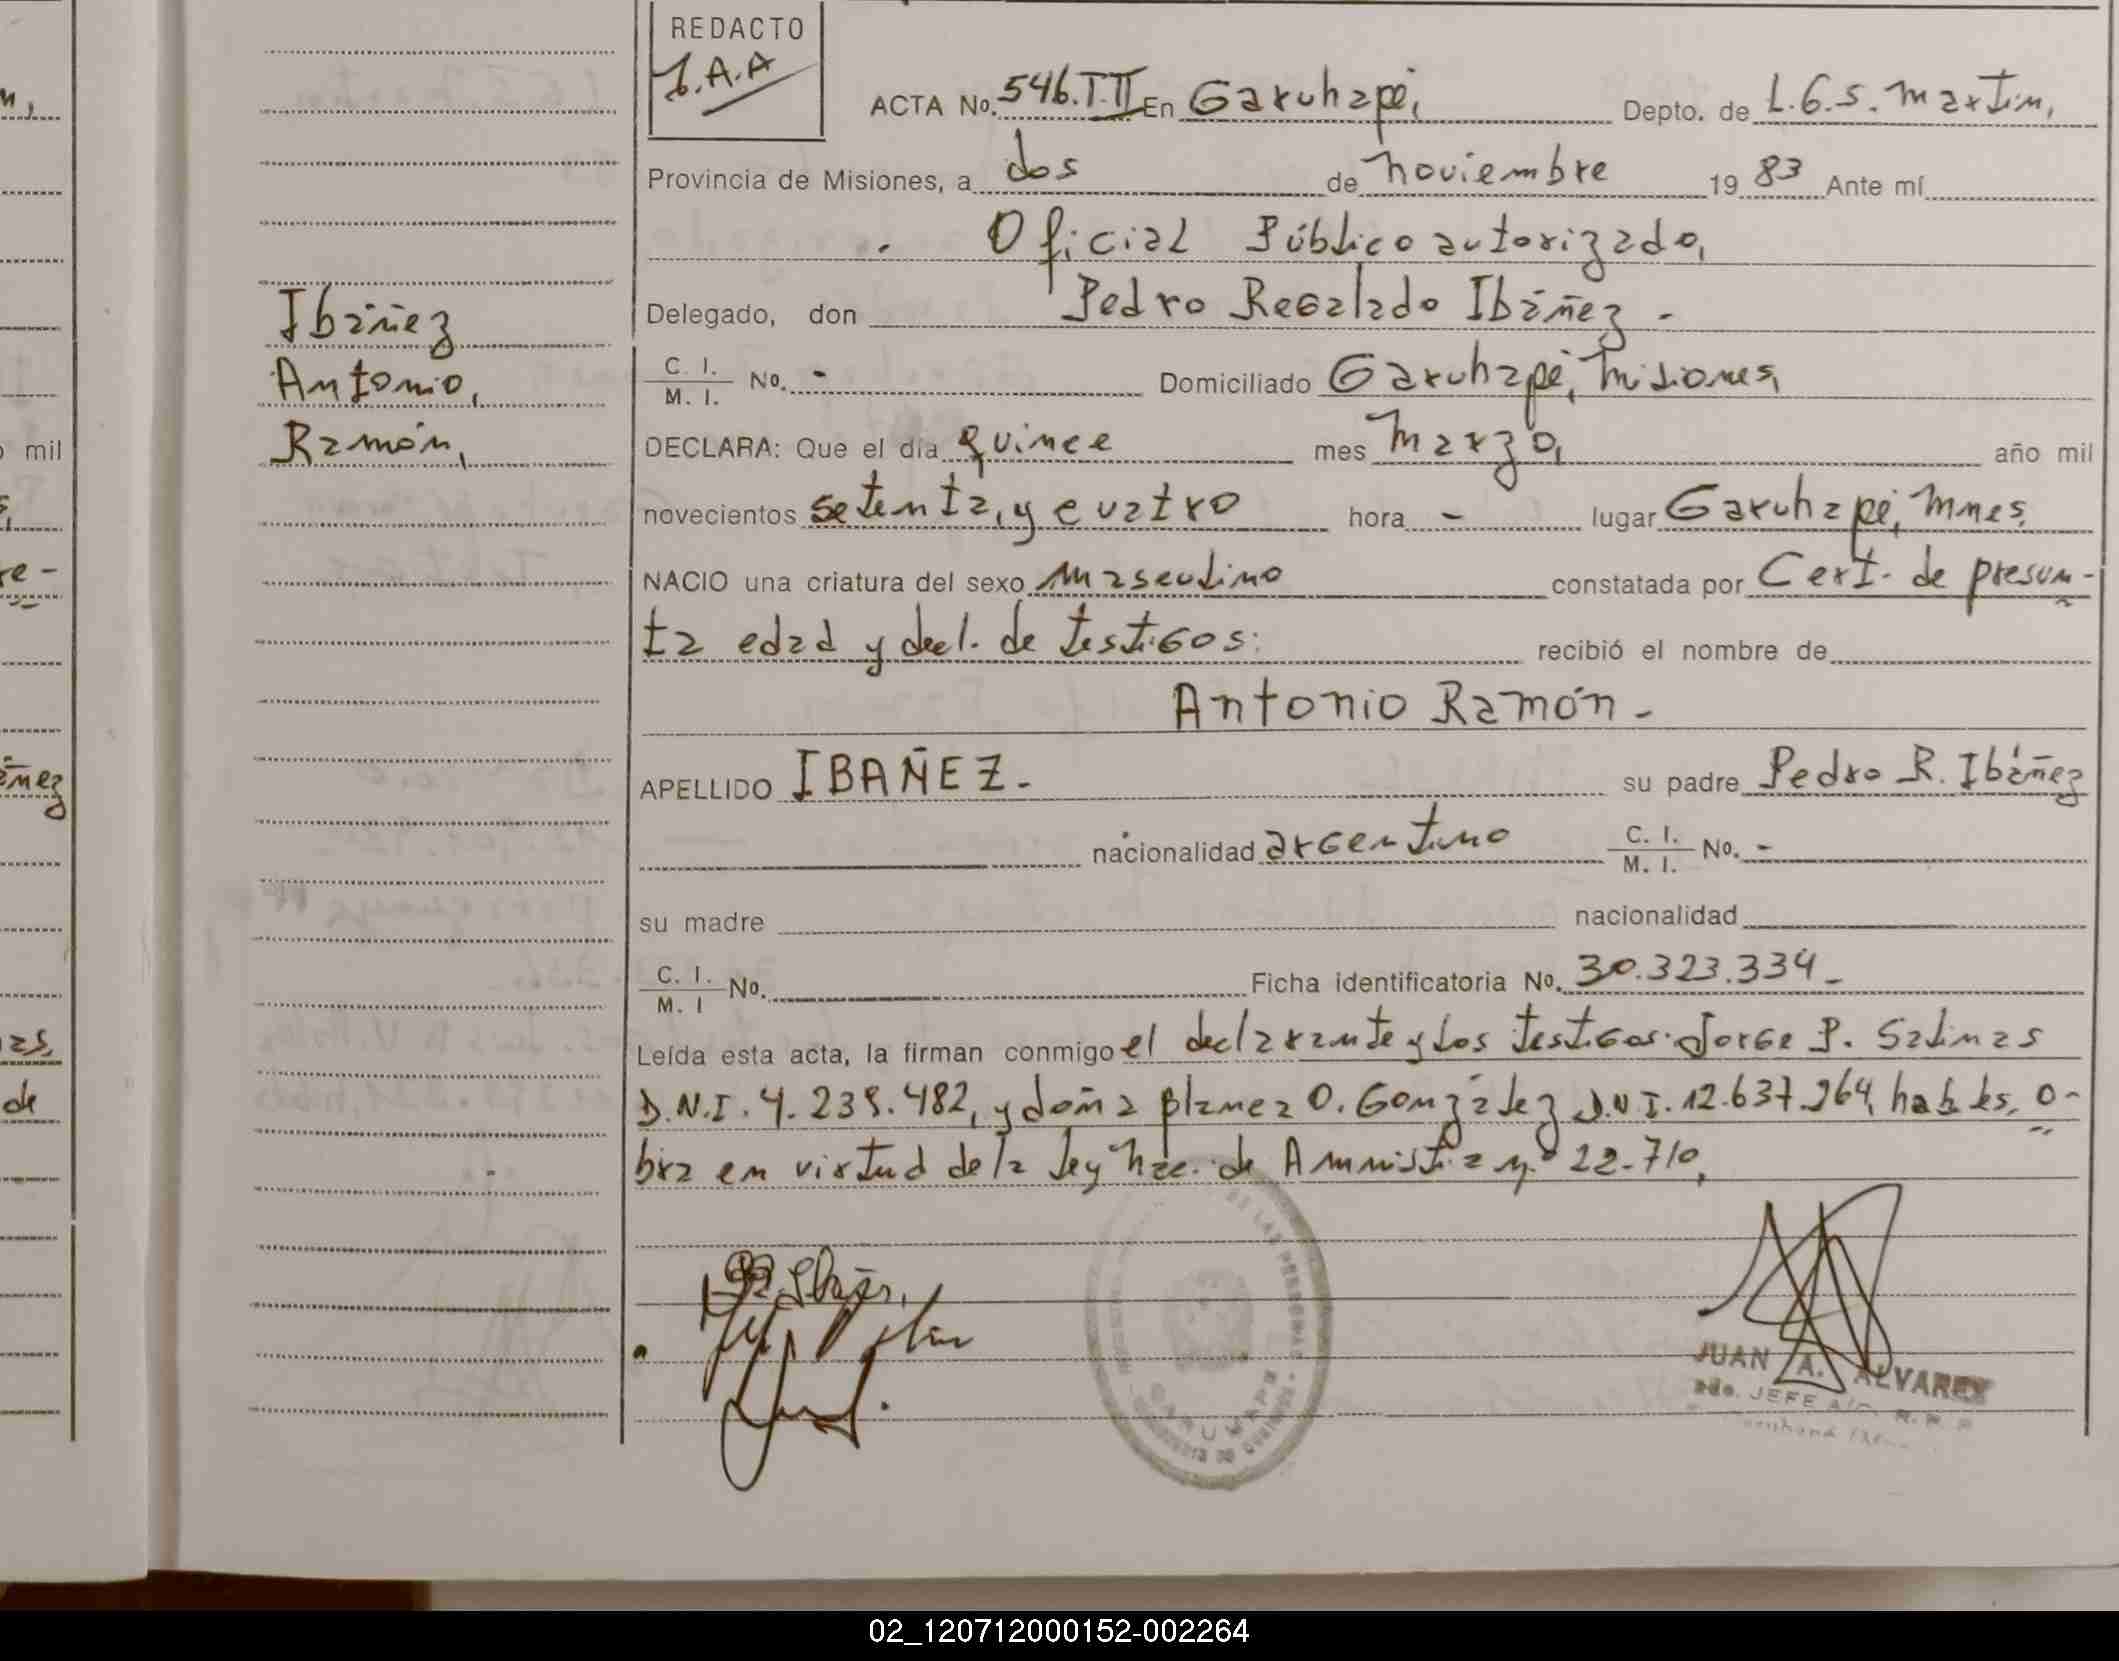 REDACTO
J.A.A
ACTA No. 546.T.II En Garuhapé, Depto. de L.G.S. Martin,
Provincia de Misiones, a dos de noviembre 19 83 Ante mí
Oficial Público autorizado,
Delegado, don Pedro Regalado Ibáñez -
C. I.
M. I. No. - Domiciliado Garuhapé, Misiones,
DECLARA: Que el día quince mes Marzo, año mil
novecientos setenta, y cuatro hora - lugar Garuhapé, Mnes,
NACIO una criatura del sexo masculino constatada por Cert. de presun-
ta edad y decl. de testigos: recibió el nombre de
Antonio Ramón -
APELLIDO IBAÑEZ. su padre Pedro R. Ibáñez
nacionalidad argentino C. I.
M. I. No. -
su madre nacionalidad
C. I.
M. I No. Ficha identificatoria No. 30.323.334_
Leída esta acta, la firman conmigo el declarante y los testigos: Jorge P. Salinas
D.N.I. 4.239.482, y doña blanca O. González D.N.I. 12.637.964, hab les, o-
bra en virtud de la ley Nac. de Amnistia n° 22.710,
Ibáñez
Antonio,
Ramón,
mil
re -
ñez
as,
de
DE LAS PERSONAS
GARUHAPE
JUAN A. ALVAREZ
JEFE
02_120712000152-002264